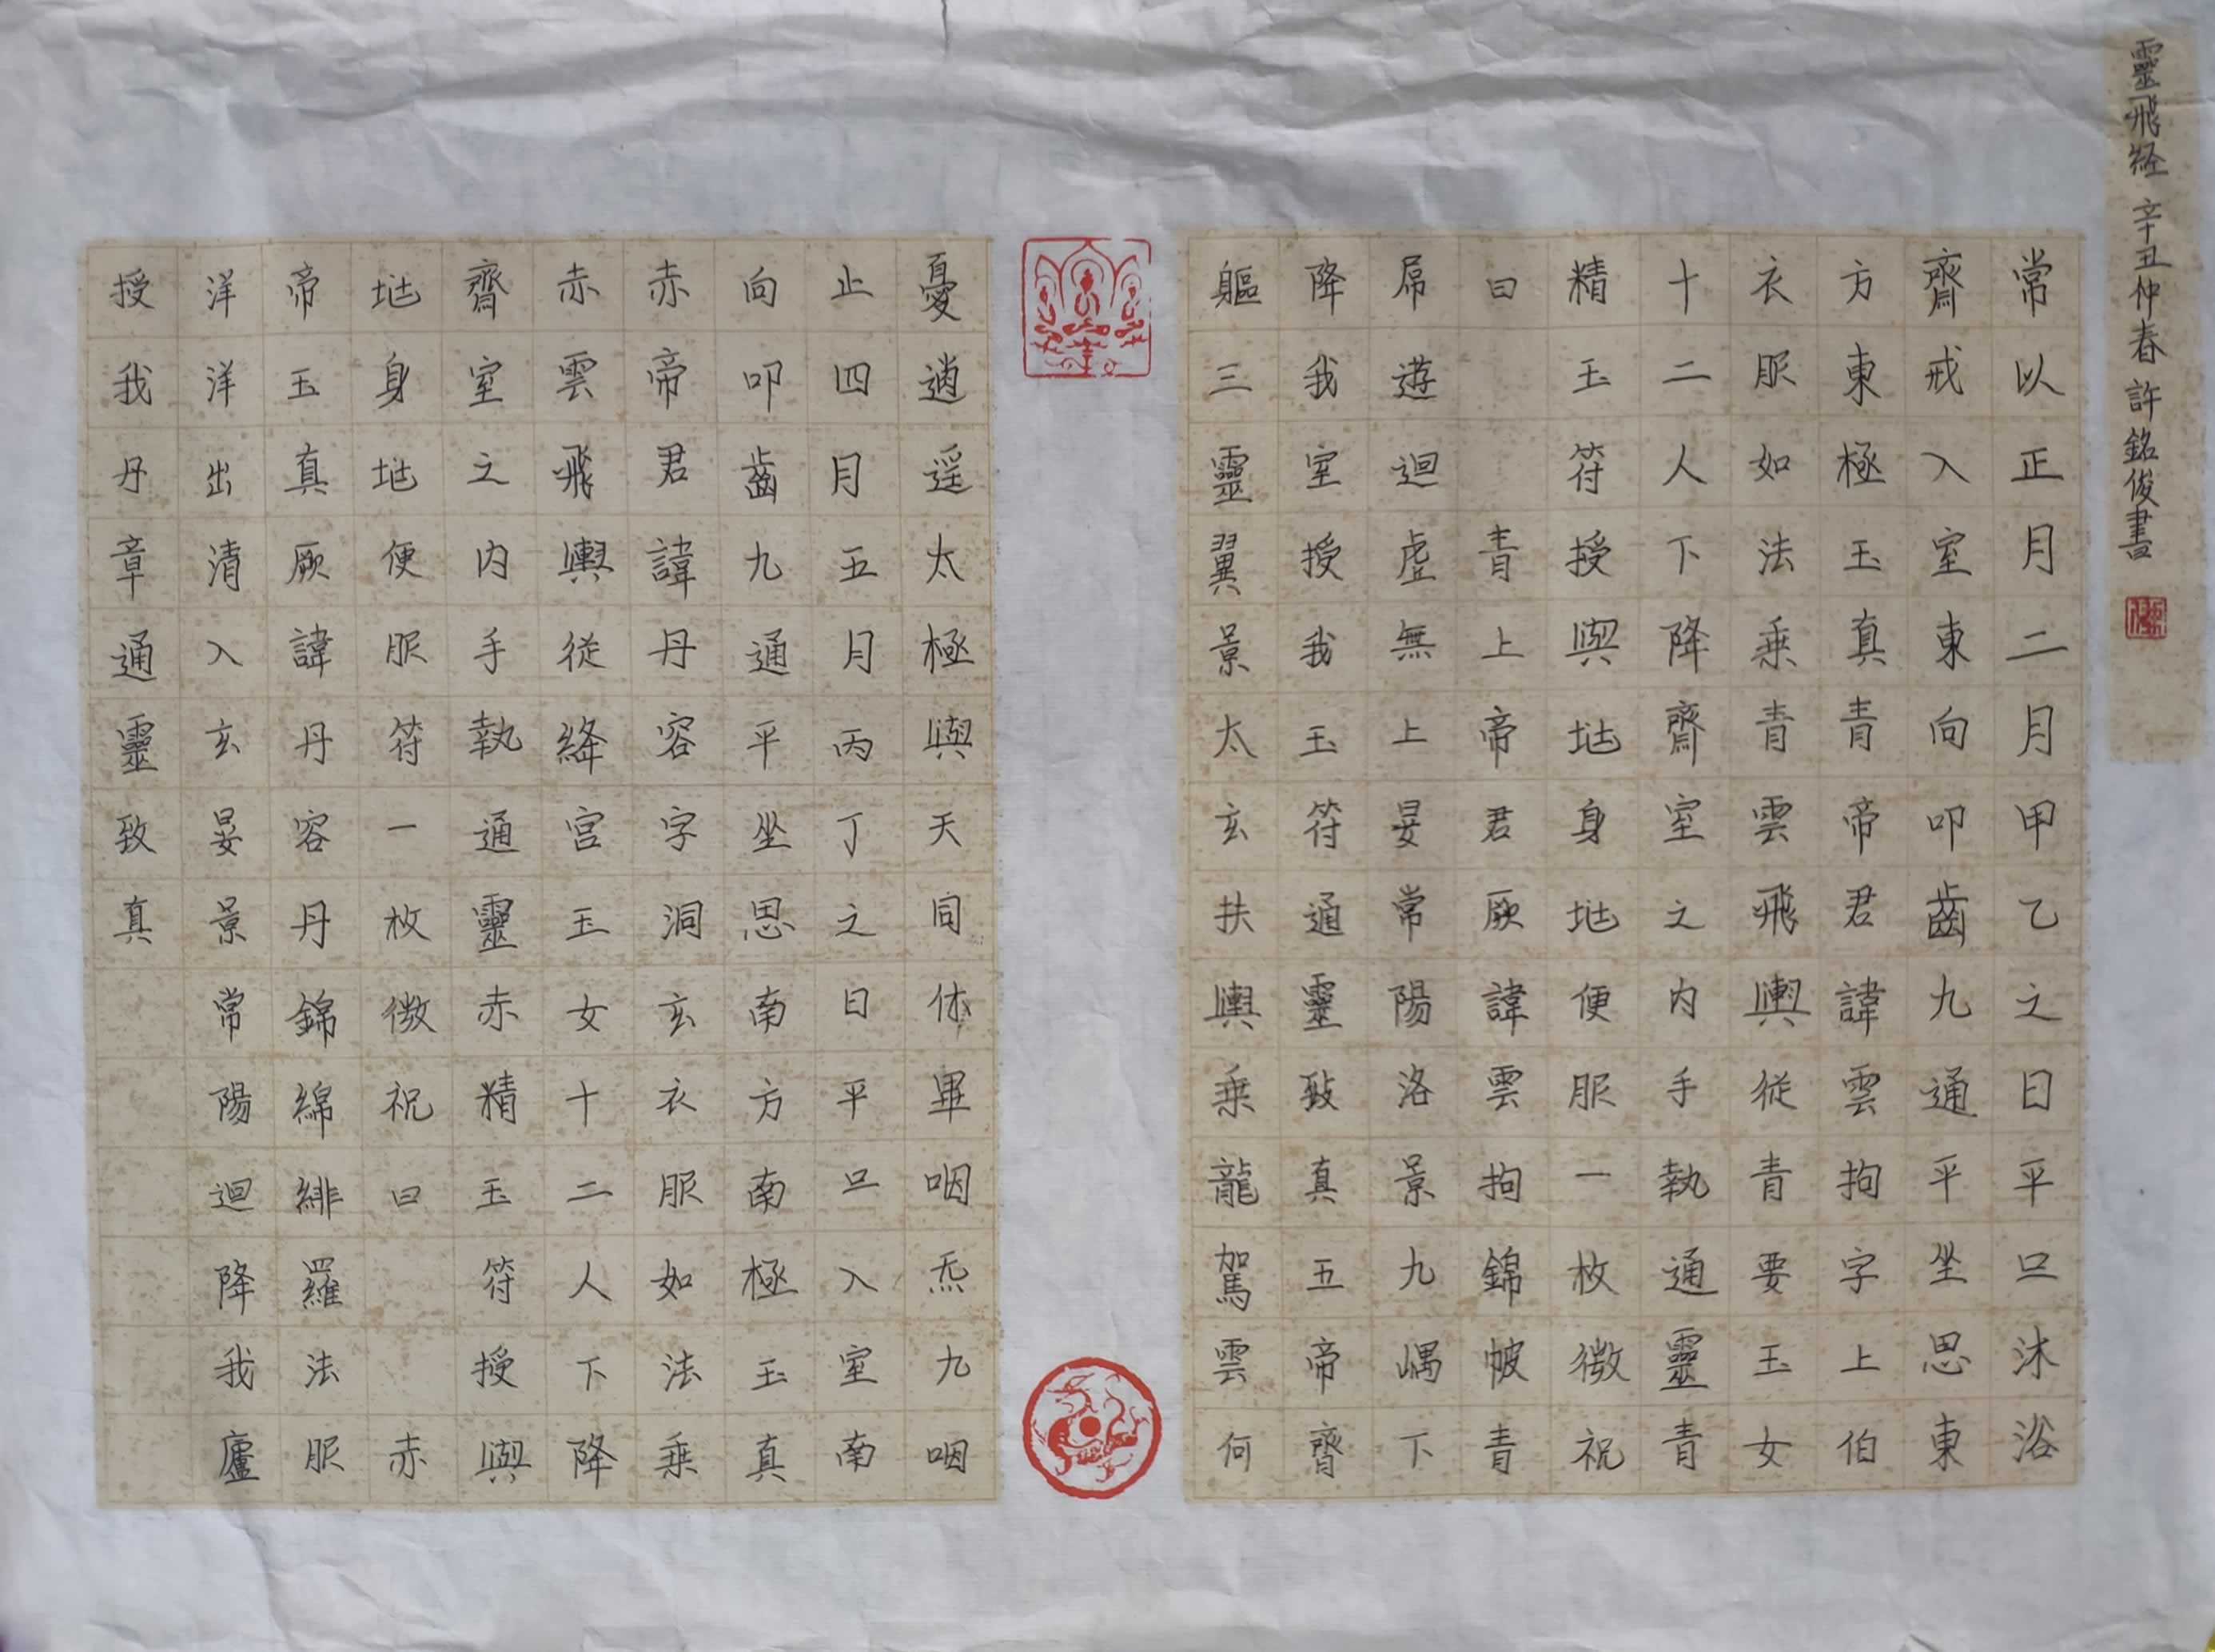 靈飛經 辛丑仲春 許銘俊書
常以正月二月甲乙之日平旦沐浴
齋戒入室東向叩齒九通平坐思東
方東極玉真青帝君諱雲拘字上伯
衣服如法乘青雲飛輿從青要玉女
十二人下降齋室之内手執通靈青
精玉符授與地身地便服一枚微祝
曰 青上帝君厥諱雲拘錦帔青
帬遊迴虛無上晏常陽洛景九嵎下
降我室授我玉符通靈致真五帝齊
軀三靈翼景太玄扶輿乘龍駕雲何
憂逍遥太極與天同休畢咽炁九咽
止四月五月丙丁之日平旦入室南
向叩齒九通平坐思南方南極玉真
赤帝君諱丹容字洞玄衣服如法乘
赤雲飛輿從絳宫玉女十二人下降
齋室之内手執通靈赤精玉符授與
地身地便服符一枚微祝曰 赤
帝玉真厥諱丹容丹錦綿緋羅法服
洋洋出清入玄晏景常陽迴降我廬
授我丹章通靈致真